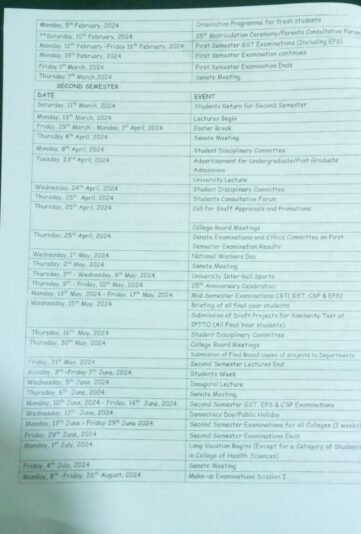 Monday, 5th February, 2024 Orientation Programme for fresh students
**Saturday, 10th February, 2024 25th Matriculation Ceremony/Parents Consultative Forum
Monday 12th February -Friday 16th February, 2024 First Semester GST Examinations (Including EPS)
Monday, 19th February, 2024 First Semester Examination continues
Friday 1st March, 2024 First Semester Examination Ends
Thursday 7th March,2024 Senate Meeting
SECOND SEMESTER
DATE EVENT
Saturday, 11th March, 2024 Students Return for Second Semester
Monday, 13th March, 2024 Lectures Begin
Friday, 29th March - Monday, 1st April, 2024 Easter Break
Thursday 4th April, 2024 Senate Meeting
Monday, 8th April, 2024 Student Disciplinary Committee
Tuesday, 23rd April, 2024 Advertisement for Undergraduate/Post Graduate
Admissions
University Lecture
Wednesday, 24th April, 2024 Student Disciplinary Committee
Thursday, 25th April, 2024 Students Consultative Forum
Thursday, 25th April, 2024 Call for Staff Appraisals and Promotions
College Board Meetings
Thursday, 25th April, 2024 Senate Examinations and Ethics Committee on First
Semester Examination Results
Wednesday, 1st May, 2024 National Workers Day
Thursday, 2nd May, 2024 Senate Meeting
Thursday, 2nd - Wednesday, 8th May, 2024 University Inter-hall Sports
Thursday, 9th - Friday, 10th May, 2024 25th Anniversary Celebration
Monday, 13th May, 2024 - Friday, 17th May, 2024 Mid-Semester Examinations CBT(GST, CSP & EPS)
Wednesday, 15th May, 2024 Briefing of all final year students
Submission of Draft Projects for Similarity Test at
IPTTO (All Final Year students)
Thursday, 16th May, 2024 Student Disciplinary Committee
Thursday, 30th May, 2024 College Board Meetings
Submission of Final Bound copies of projects to Departments
Friday, 31st May, 2024 Second Semester Lectures End
Monday, 3rd -Friday 7th June, 2024 Students Week
Wednesday, 5th June, 2024 Inaugural Lecture
Thursday, 6th June, 2024 Senate Meeting
Monday, 10th June, 2024 - Friday, 14th June, 2024 Second Semester GST, EPS & CSP Examinations
Wednesday 12th June, 2024 Democracy Day/Public Holiday
Monday, 17th June - Friday 29th June 2024 Second Semester Examinations for all Colleges (2 weeks)
Friday, 29th June, 2024 Second Semester Examinations Ends
Monday, 1st July, 2024 Long Vacation Begins (Except for a Category of Students
in College of Health Sciences)
Friday, 4th July, 2024 Senate Meeting
Monday, 8th -Friday, 26th August, 2024 Make-up Examinations Session I